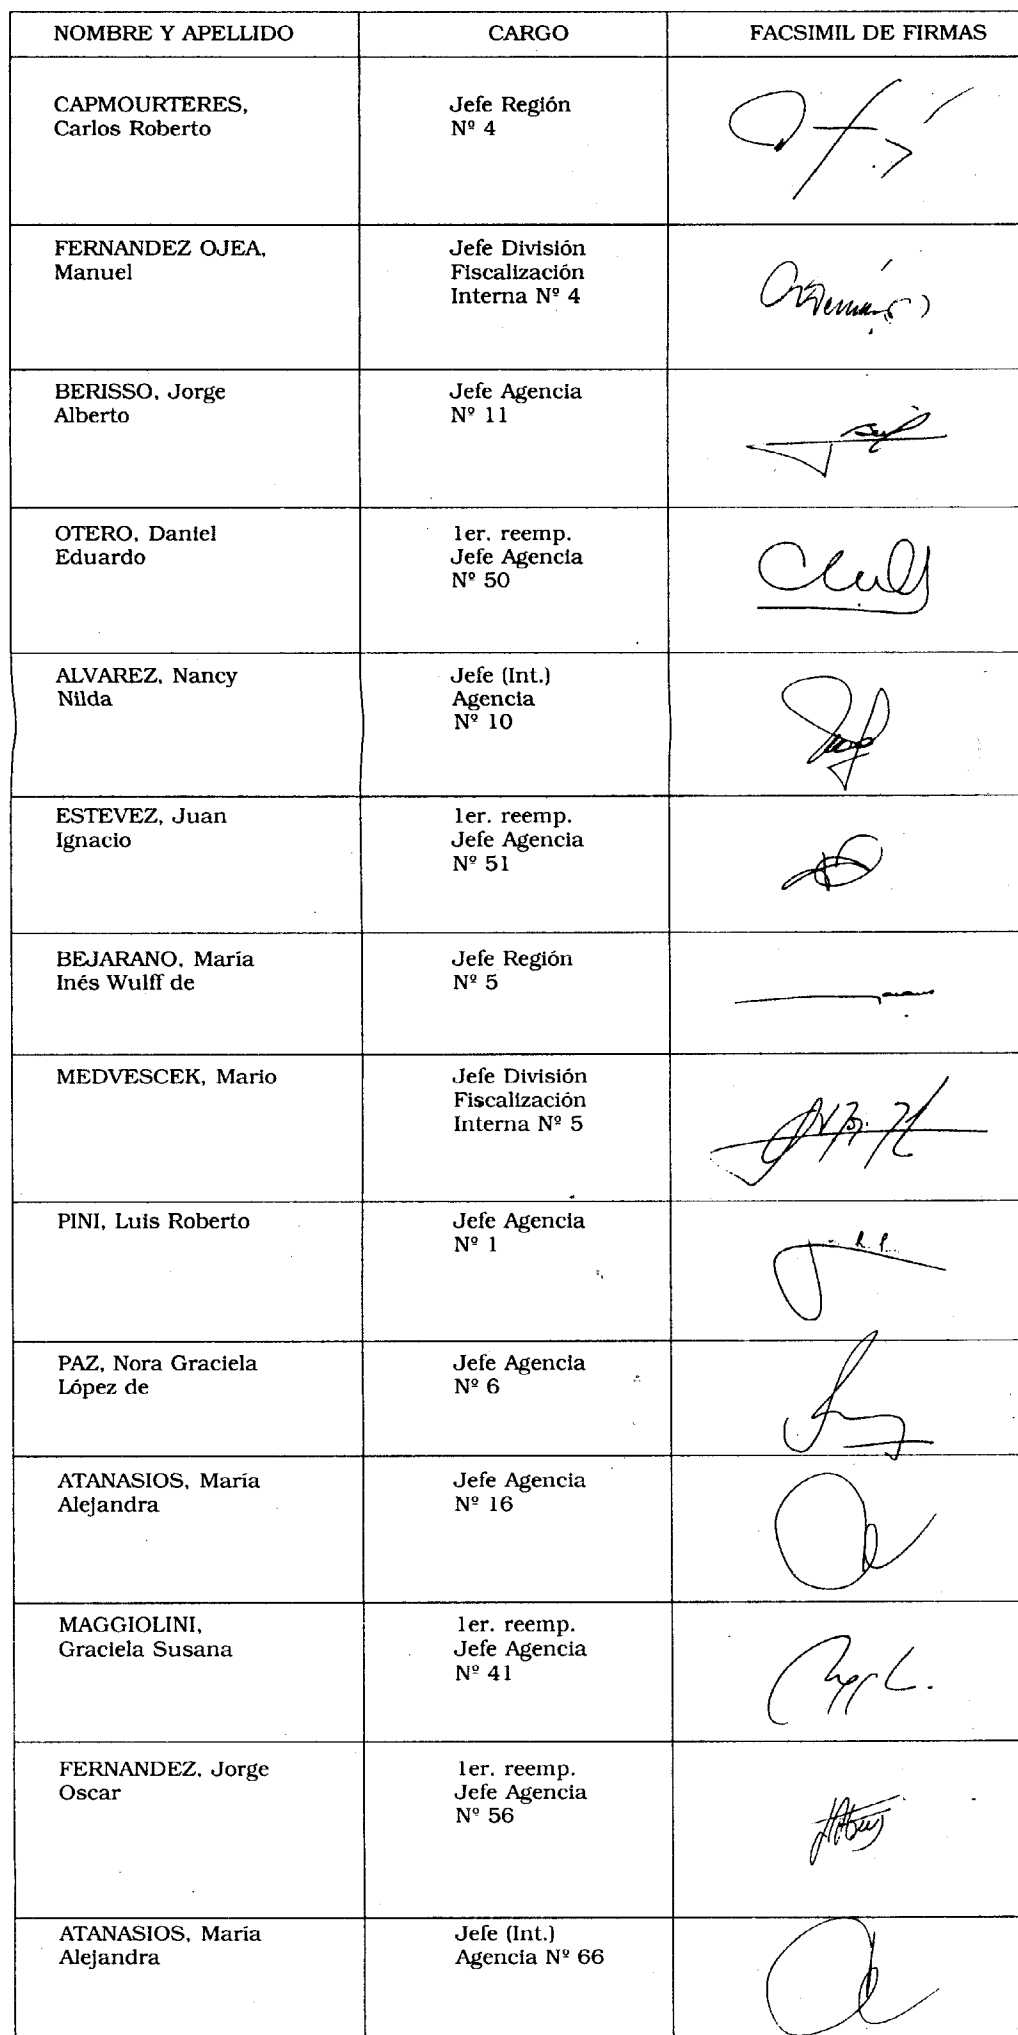 NOMBRE Y APELLIDO CARGO FACSIMIL DE FIRMAS
CAPMOURTERES,
Carlos Roberto
Jefe Región
Nº 4
FERNANDEZ OJEA,
Manuel
Jefe División
Fiscalización
Interna Nº 4
BERISSO, Jorge
Alberto
Jefe Agencia
Nº 11
OTERO, Daniel
Eduardo
1er. reemp.
Jefe Agencia
Nº 50
ALVAREZ, Nancy
Nilda
Jefe (Int.)
Agencia
Nº 10
ESTEVEZ, Juan
Ignacio
1er. reemp.
Jefe Agencia
Nº 51
BEJARANO, María
Inés Wulff de
Jefe Región
Nº 5
MEDVESCEK, Mario
Jefe División
Fiscalización
Interna Nº 5
PINI, Luis Roberto
Jefe Agencia
Nº 1
PAZ, Nora Graciela
López de
Jefe Agencia
Nº 6
ATANASIOS, María
Alejandra
Jefe Agencia
Nº 16
MAGGIOLINI,
Graciela Susana
1er. reemp.
Jefe Agencia
Nº 41
FERNANDEZ, Jorge
Oscar
1er. reemp.
Jefe Agencia
Nº 56
ATANASIOS, María
Alejandra
Jefe (Int.)
Agencia Nº 66